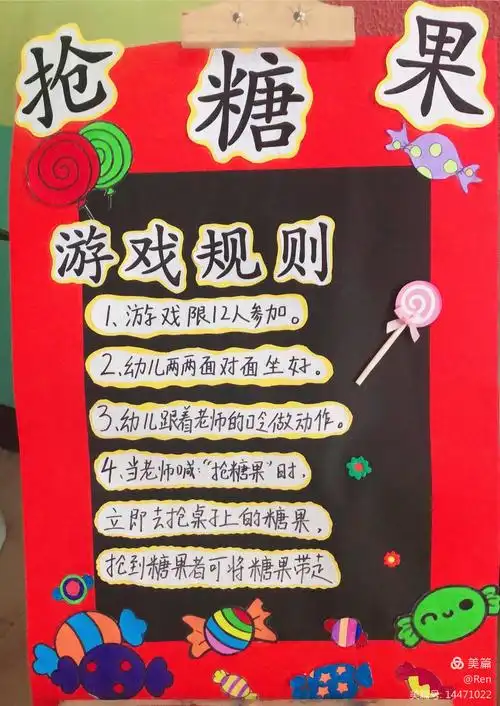 抢糖果
游戏规则
1、游戏限12人参加。
2、幼儿两两面对面坐好。
3、幼儿跟着老师的口令做动作。
4、当老师喊:“抢糖果”时,
立即去抢桌子上的糖果,
抢到糖果者可将糖果带走
美篇
@Ren
美篇号: 14471022